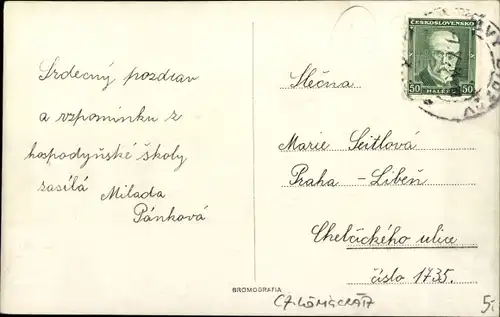 Srdečný pozdrav
a vzpomínku z
hospodyňské školy
zasílá Milada
Pánková
ČESKOSLOVENSKO
50 HALÉŘŮ 50
Slečna
Marie Seitlová
Praha – Libeň
Chelčického ulice
číslo 1735.
BROMOGRAFIA
5,-